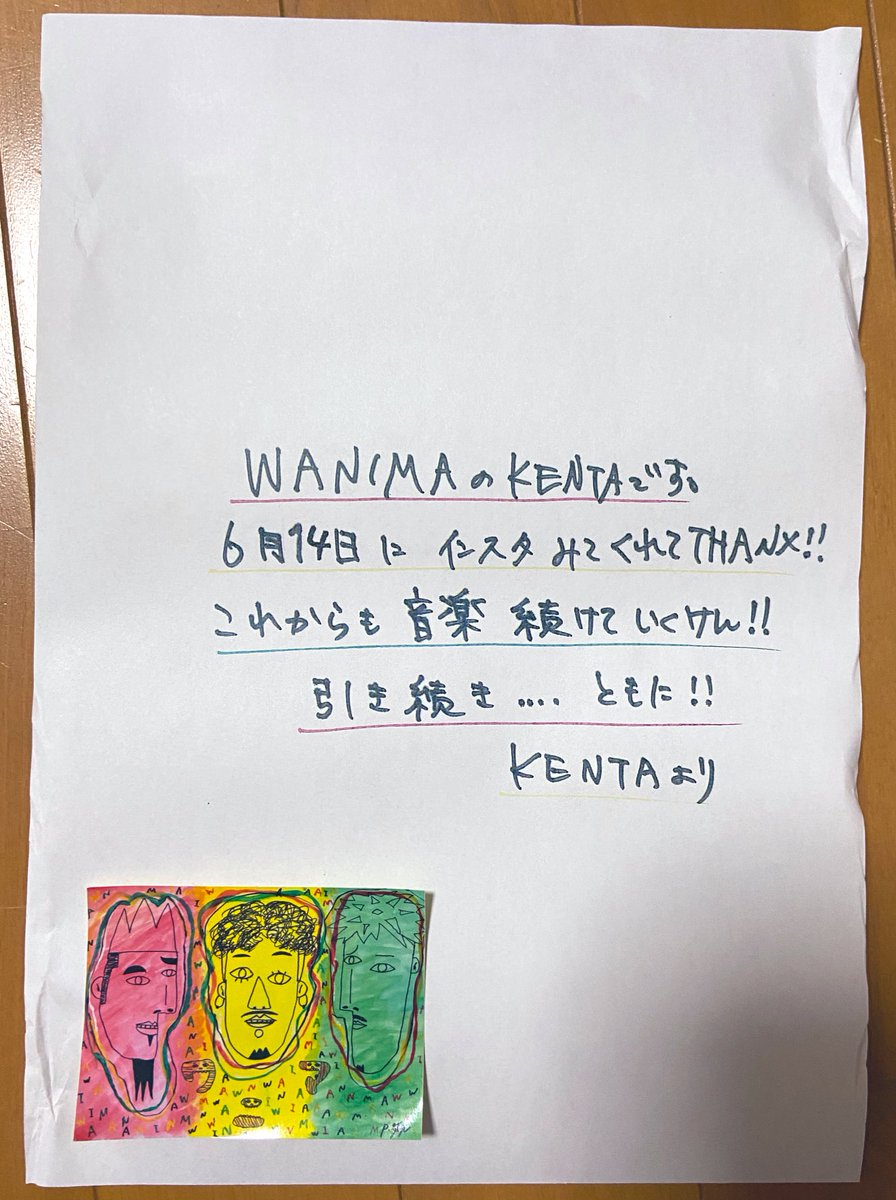 WANIMAのKENTAです。
6月14日に インスタ みてくれてTHANX!!
これからも 音楽 続けていくけん!!
引き続き .... ともに!!
KENTAより